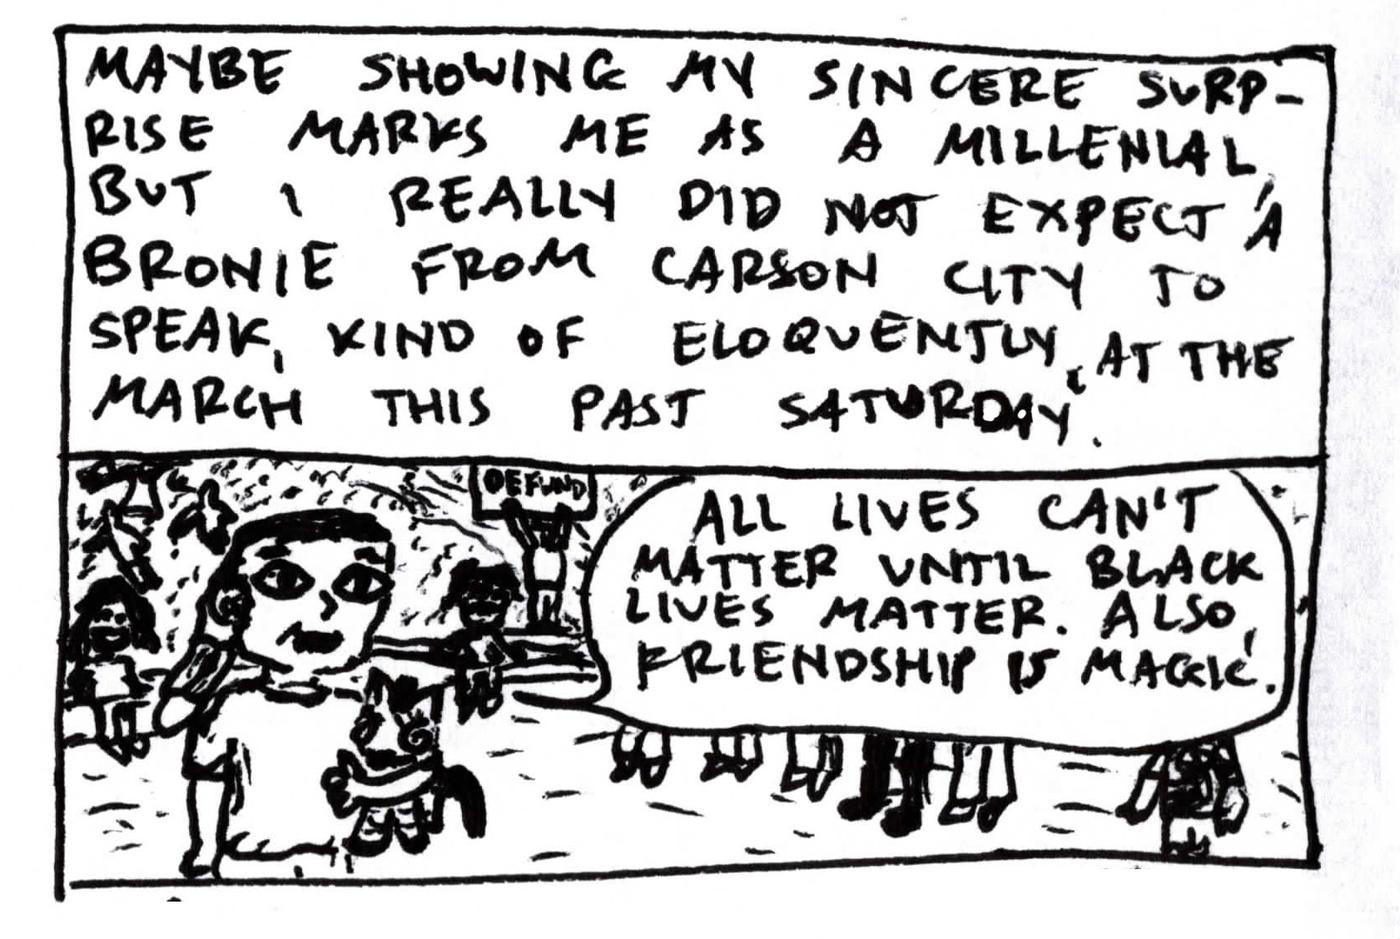 MAYBE SHOWING MY SINCERE SURP-
RISE MARKS ME AS A MILLENIAL,
BUT I REALLY DID NOT EXPECT A
BRONIE FROM CARSON CITY TO
SPEAK, KIND OF ELOQUENTLY, AT THE
MARCH THIS PAST SATURDAY.
DEFUND
ALL LIVES CAN'T
MATTER UNTIL BLACK
LIVES MATTER. ALSO,
FRIENDSHIP IS MAGGIC.